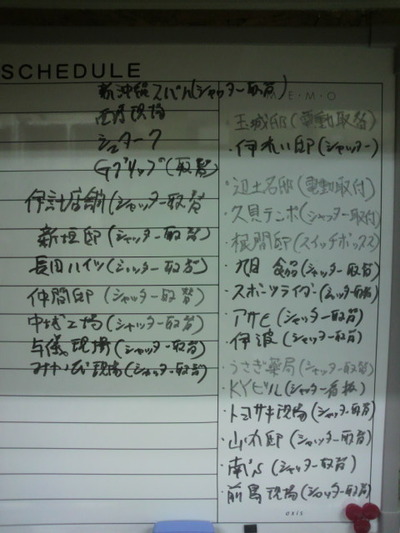 SCHEDULE
新沖縄スバル(シャッター取替)
西原現場
シュターク
Gグリップ(取替)
伊計店舗(シャッター取替
新垣邸(シャッター取替)
長田ハイツ(シャッター取替)
仲間邸(シャッター取替
中城工場(シャッター取替)
与儀現場(シャッター取替)
現場(シャッター取替)
MEMO
玉城邸(電動取替)
・伊れい邸(シャッター)
・辺土名邸(電動取付)
・久貝テンポ(シャッター取付)
・根間邸(スイッチボックス)
・丸昌 食品(シャッター取替)
・スポーツライダー(シャッター取替)
・アサヒ(シャッター取替)
・伊波(シャッター取替)
・うさぎ薬局(シャッター取替)
・KYビル(シャッター看板)
・トヨサキ現場(シャッター取替)
・山内邸(シャッター取替)
・南(シャッター取替)
・前島現場(シャッター取替)